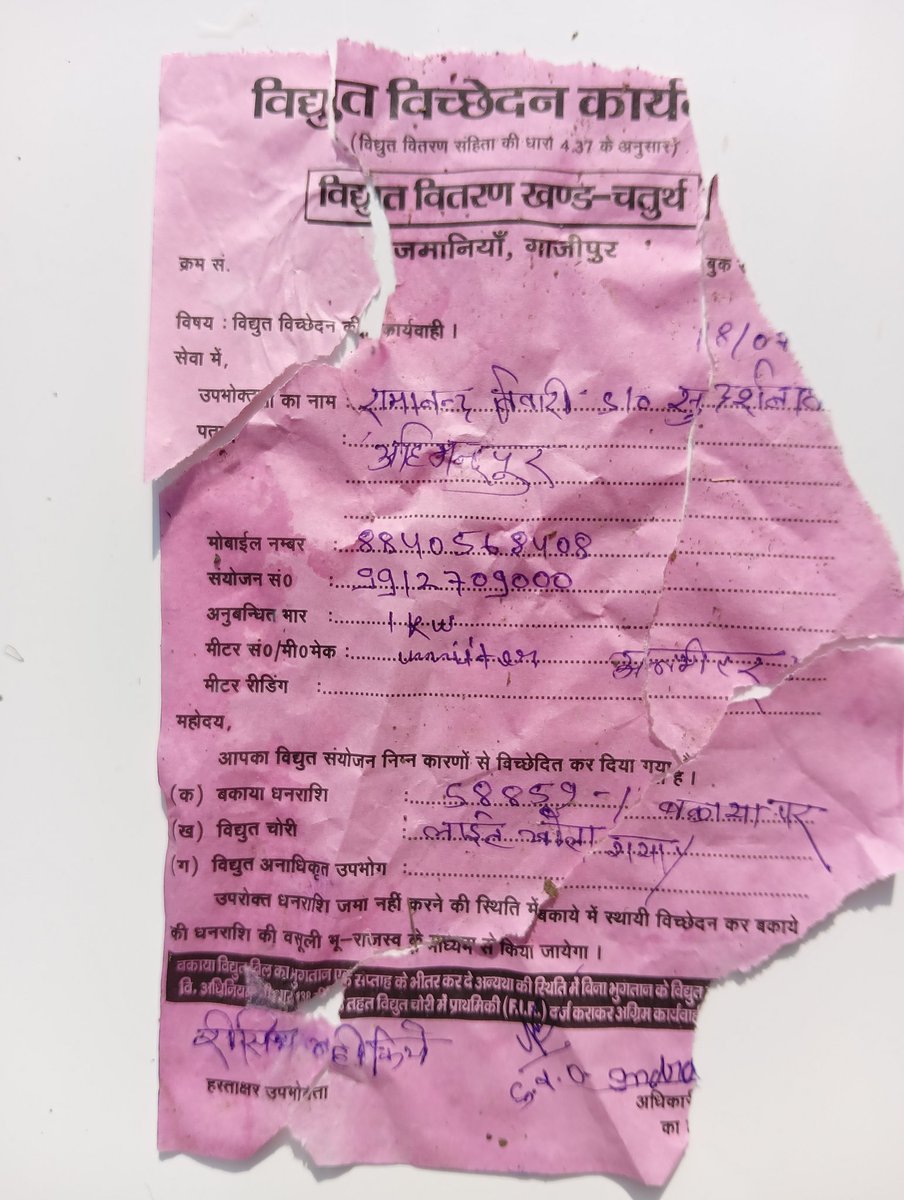 विद्युत विच्छेदन कार्य
(विद्युत वितरण संहिता की धारा 4.37 के अनुसार)
विद्युत वितरण खण्ड-चतुर्थ
जमानियाँ, गाजीपुर
क्रम सं. बुक
विषय : विद्युत विच्छेदन की कार्यवाही ।
18/0
सेवा में,
उपभोक्ता का नाम : रामानन्द तिवारी S/o सुदर्शन
पता
मोबाईल नम्बर : 8840568408
संयोजन सं0 : 9912709000
अनुबन्धित भार : 1 KW
मीटर सं0/मी0मेक :
मीटर रीडिंग :
महोदय,
आपका विद्युत संयोजन निम्न कारणों से विच्छेदित कर दिया गया है ।
(क) बकाया धनराशि : 58859-/ बकाया पर
(ख) विद्युत चोरी : लाईन खोला गया
(ग) विद्युत अनाधिकृत उपभोग :
उपरोक्त धनराशि जमा नहीं करने की स्थिति में बकाये में स्थायी विच्छेदन कर बकाये
की धनराशि की वसूली भू-राजस्व के माध्यम से किया जायेगा ।
बकाया विद्युत बिल का भुगतान एक सप्ताह के भीतर कर दे अन्यथा की स्थिति में बिना भुगतान के विद्युत
वि. अधिनियम 138 तहत विद्युत चोरी में प्राथमिकी (F.I.R.) दर्ज कराकर अग्रिम कार्यवा
रीसिव नही किये
हस्ताक्षर उपभोक्ता
अधिकारी
का